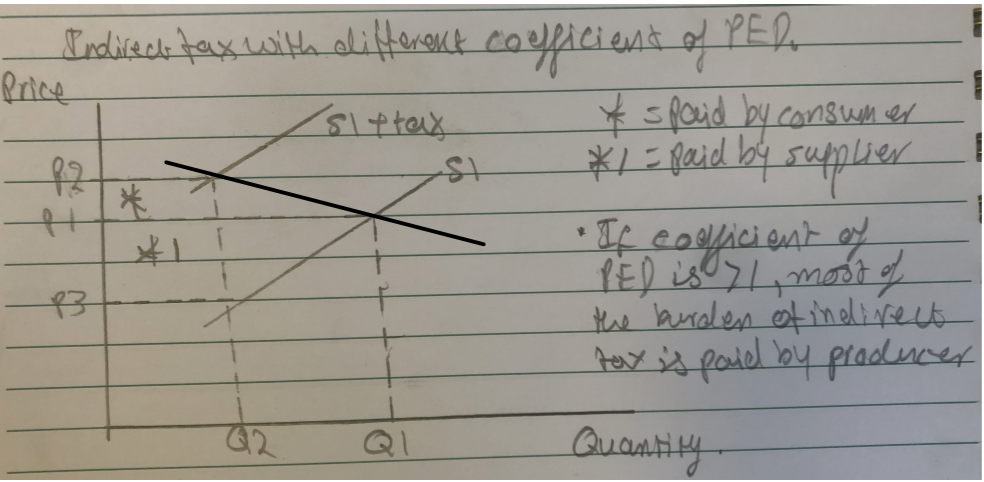 Indirect tax with different coefficient of PED.
Price
S1 + tax
* = Paid by consumer
*1 = Paid by supplier
S1
P2
*
P1
*1
P3
• If coefficient of
PED is >1, most of
the burden of indirect
tax is paid by producer
Q2
Q1
Quantity.